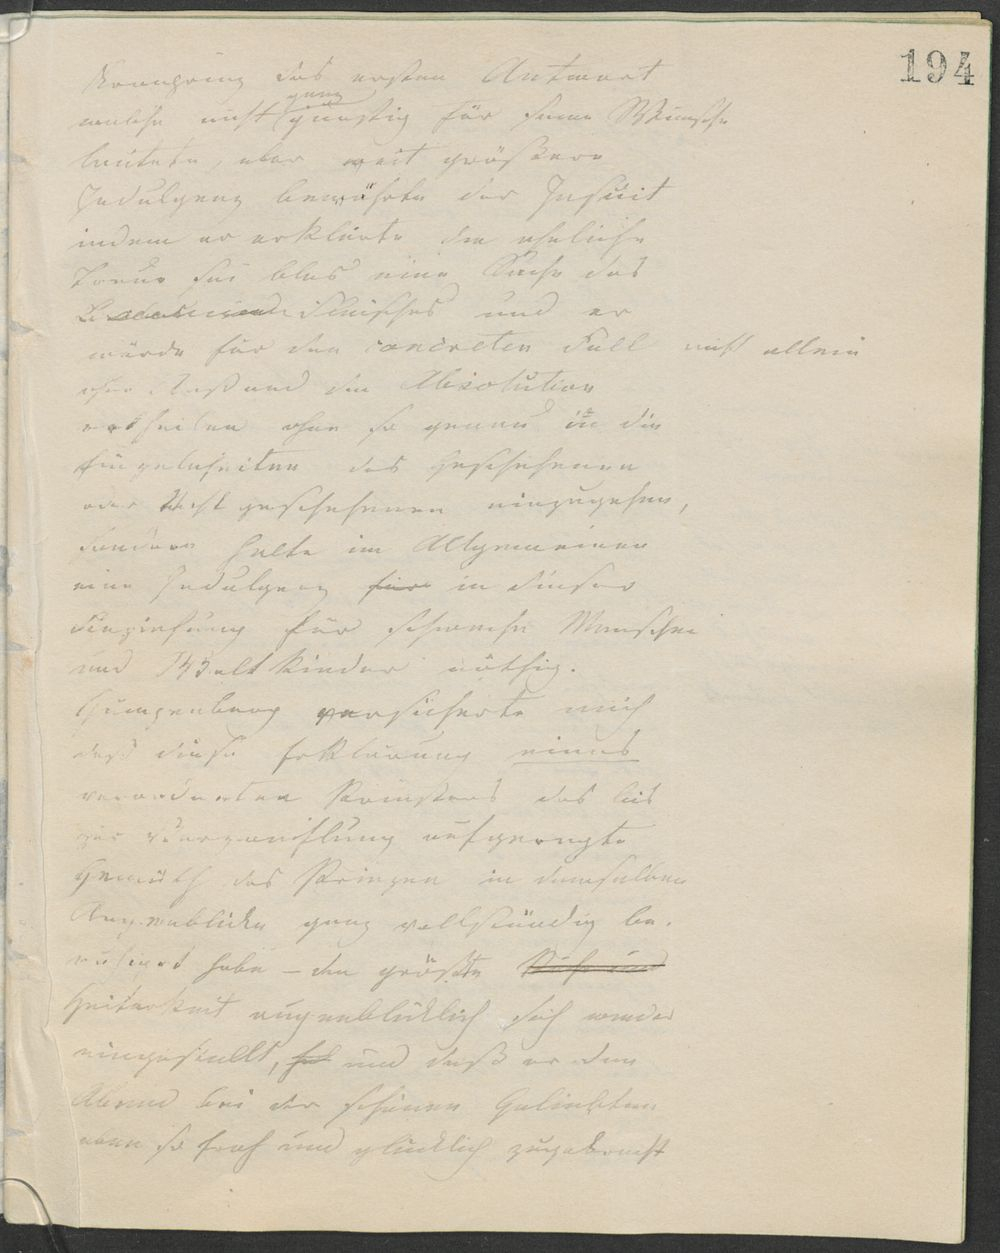 194
Kronprinz das ersten Antwort
welche nicht ganz günstig für seine Wünsche
lautete, aber weit größere
Indulgenz bewährte der Jesuit
indem er erklärte die eheliche
Treue sei blos eine Sache des
Fleisches und er
würde für den concreten Fall nicht allein
ohne Anstand die Absolution
ertheilen ohne so genau in die
Einzelnheiten des Geschehenen
oder Nicht geschehenen einzugehen,
sondern halte im Allgemeinen
eine Indulgenz für in dieser
Beziehung für schwache Menschen
und Weltkinder nöthig.
versicherte mich
daß diese Erklärung eines
Priesters das bis
zur Verzweiflung aufgeregte
Gemüth des Prinzen in demselben
Augenblicke ganz vollständig be-
ruhiget habe – die größte Ruhe und
Heiterkeit augenblicklich sich wieder
eingestellt, und daß er den
Abend bei der schönen Geliebten
eben so froh und glücklich zugebracht